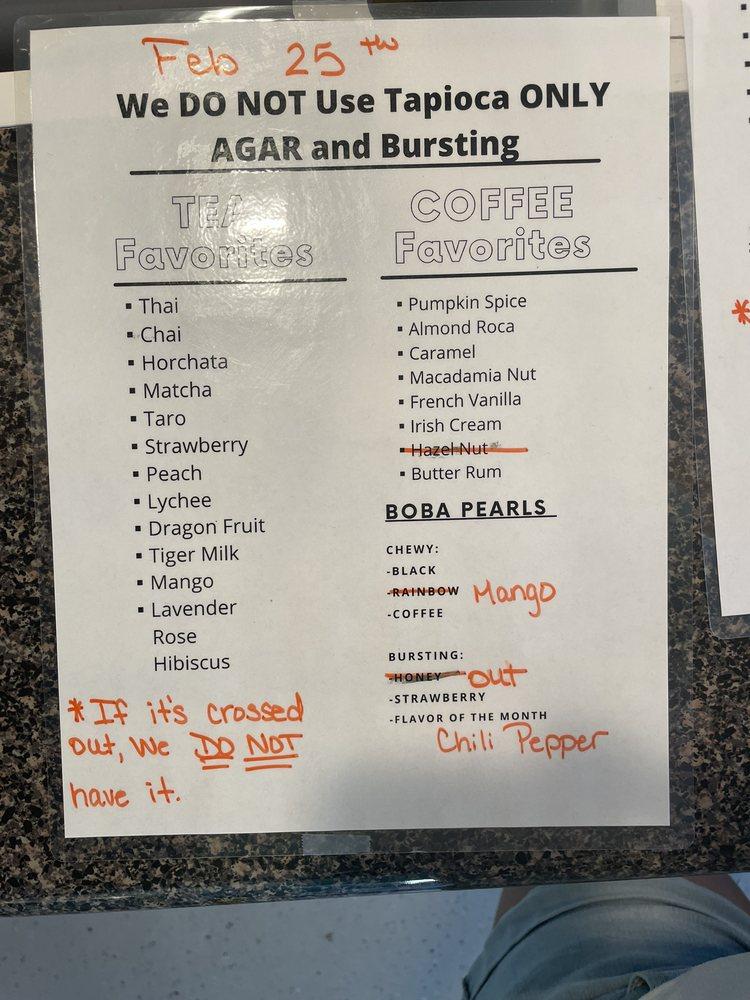 Feb 25th
We DO NOT Use Tapioca ONLY
AGAR and Bursting
TEA
Favorites
▪ Thai
▪ Chai
▪ Horchata
▪ Matcha
▪ Taro
▪ Strawberry
▪ Peach
▪ Lychee
▪ Dragon Fruit
▪ Tiger Milk
▪ Mango
▪ Lavender
Rose
Hibiscus
*If it's crossed
out, we DO NOT
have it.
COFFEE
Favorites
▪ Pumpkin Spice
▪ Almond Roca
▪ Caramel
▪ Macadamia Nut
▪ French Vanilla
▪ Irish Cream
▪ Hazel Nut
▪ Butter Rum
BOBA PEARLS
CHEWY:
-BLACK
-RAINBOW Mango
-COFFEE
BURSTING:
-HONEY out
-STRAWBERRY
-FLAVOR OF THE MONTH
Chili Pepper
*